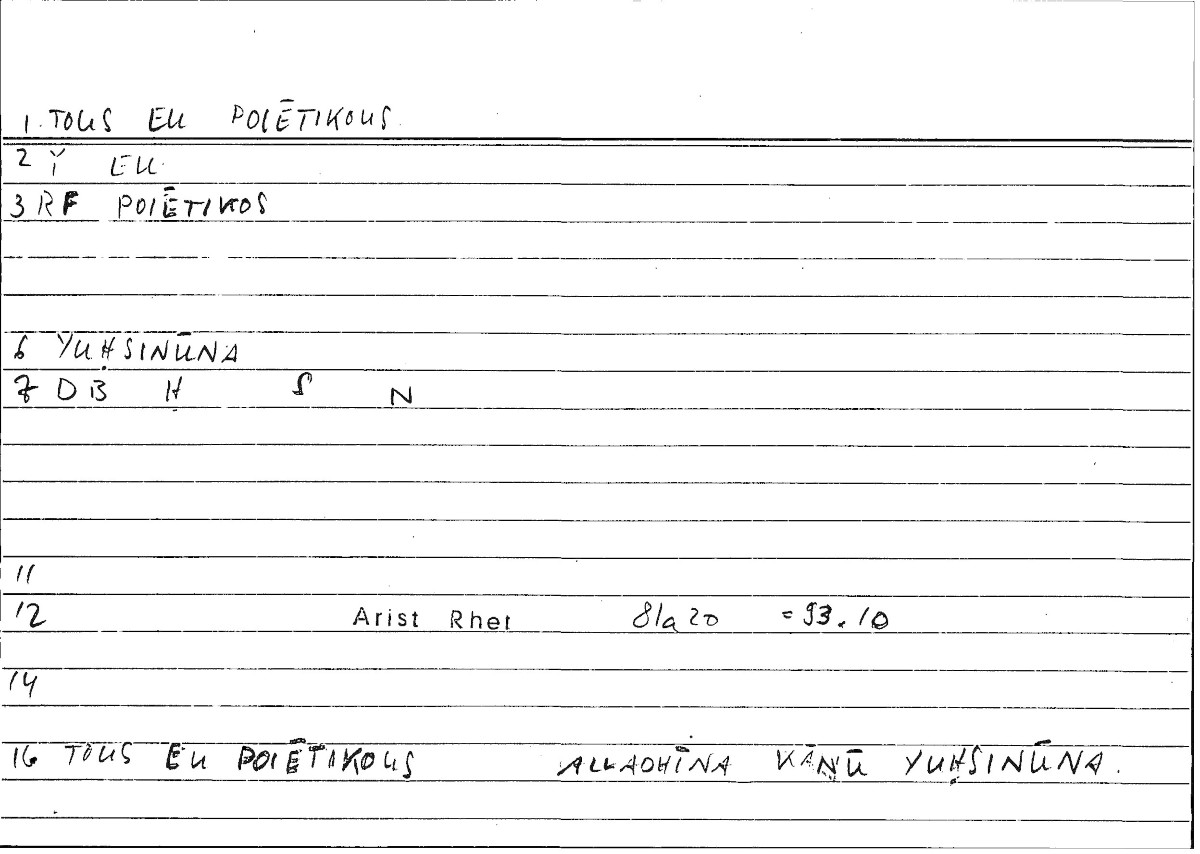 1. TOUS EU POIĒTIKOUS
2 Y EU
3 RF POIĒTIKOS
6 YUḤSINŪNA
7 DB Ḥ S N
11
12 Arist Rhet 81a20 = 93.10
14
16 TOUS EU POIĒTIKOUS ALLADHĪNA KĀNŪ YUḤSINŪNA.